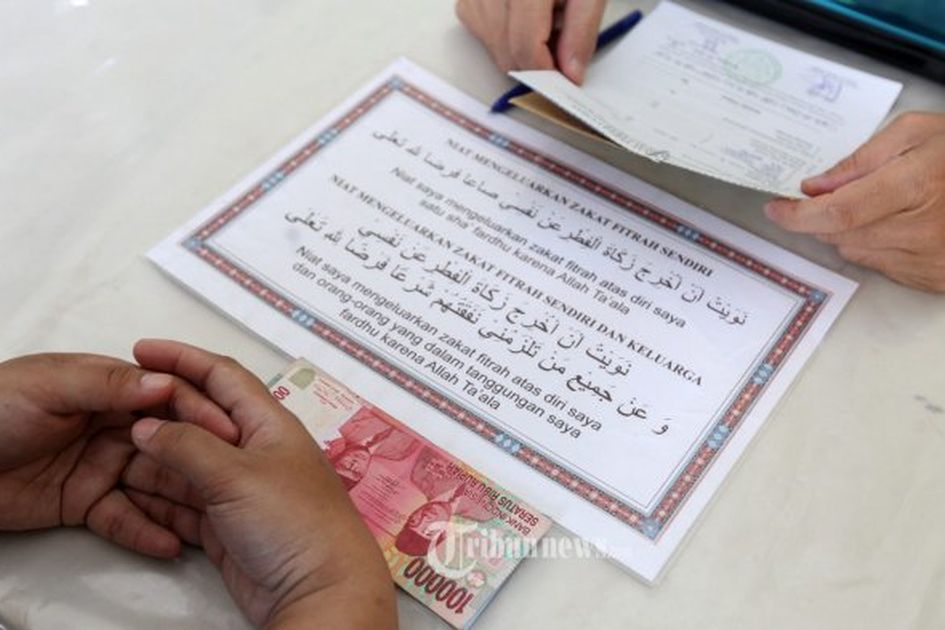 NIAT MENGELUARKAN ZAKAT FITRAH SENDIRI
نَوَيْتُ أَنْ أُخْرِجَ زَكَاةَ الْفِطْرِ عَنْ نَفْسِي صَاعًا فَرْضًا لِلَّهِ تَعَالَى
Niat saya mengeluarkan zakat fitrah atas diri saya
satu sha' fardhu karena Allah Ta'ala
NIAT MENGELUARKAN ZAKAT FITRAH SENDIRI DAN KELUARGA
نَوَيْتُ أَنْ أُخْرِجَ زَكَاةَ الْفِطْرِ عَنْ نَفْسِي
وَ عَنْ جَمِيْعِ مَنْ تَلْزَمُنِي نَفَقَتُهُمْ شَرْعًا فَرْضًا لِلَّهِ تَعَالَى
Niat saya mengeluarkan zakat fitrah atas diri saya
dan orang-orang yang dalam tanggungan saya
fardhu karena Allah Ta'ala
BANK INDONESIA
SERATUS RIBU RUPIAH
100000
Tribunnews